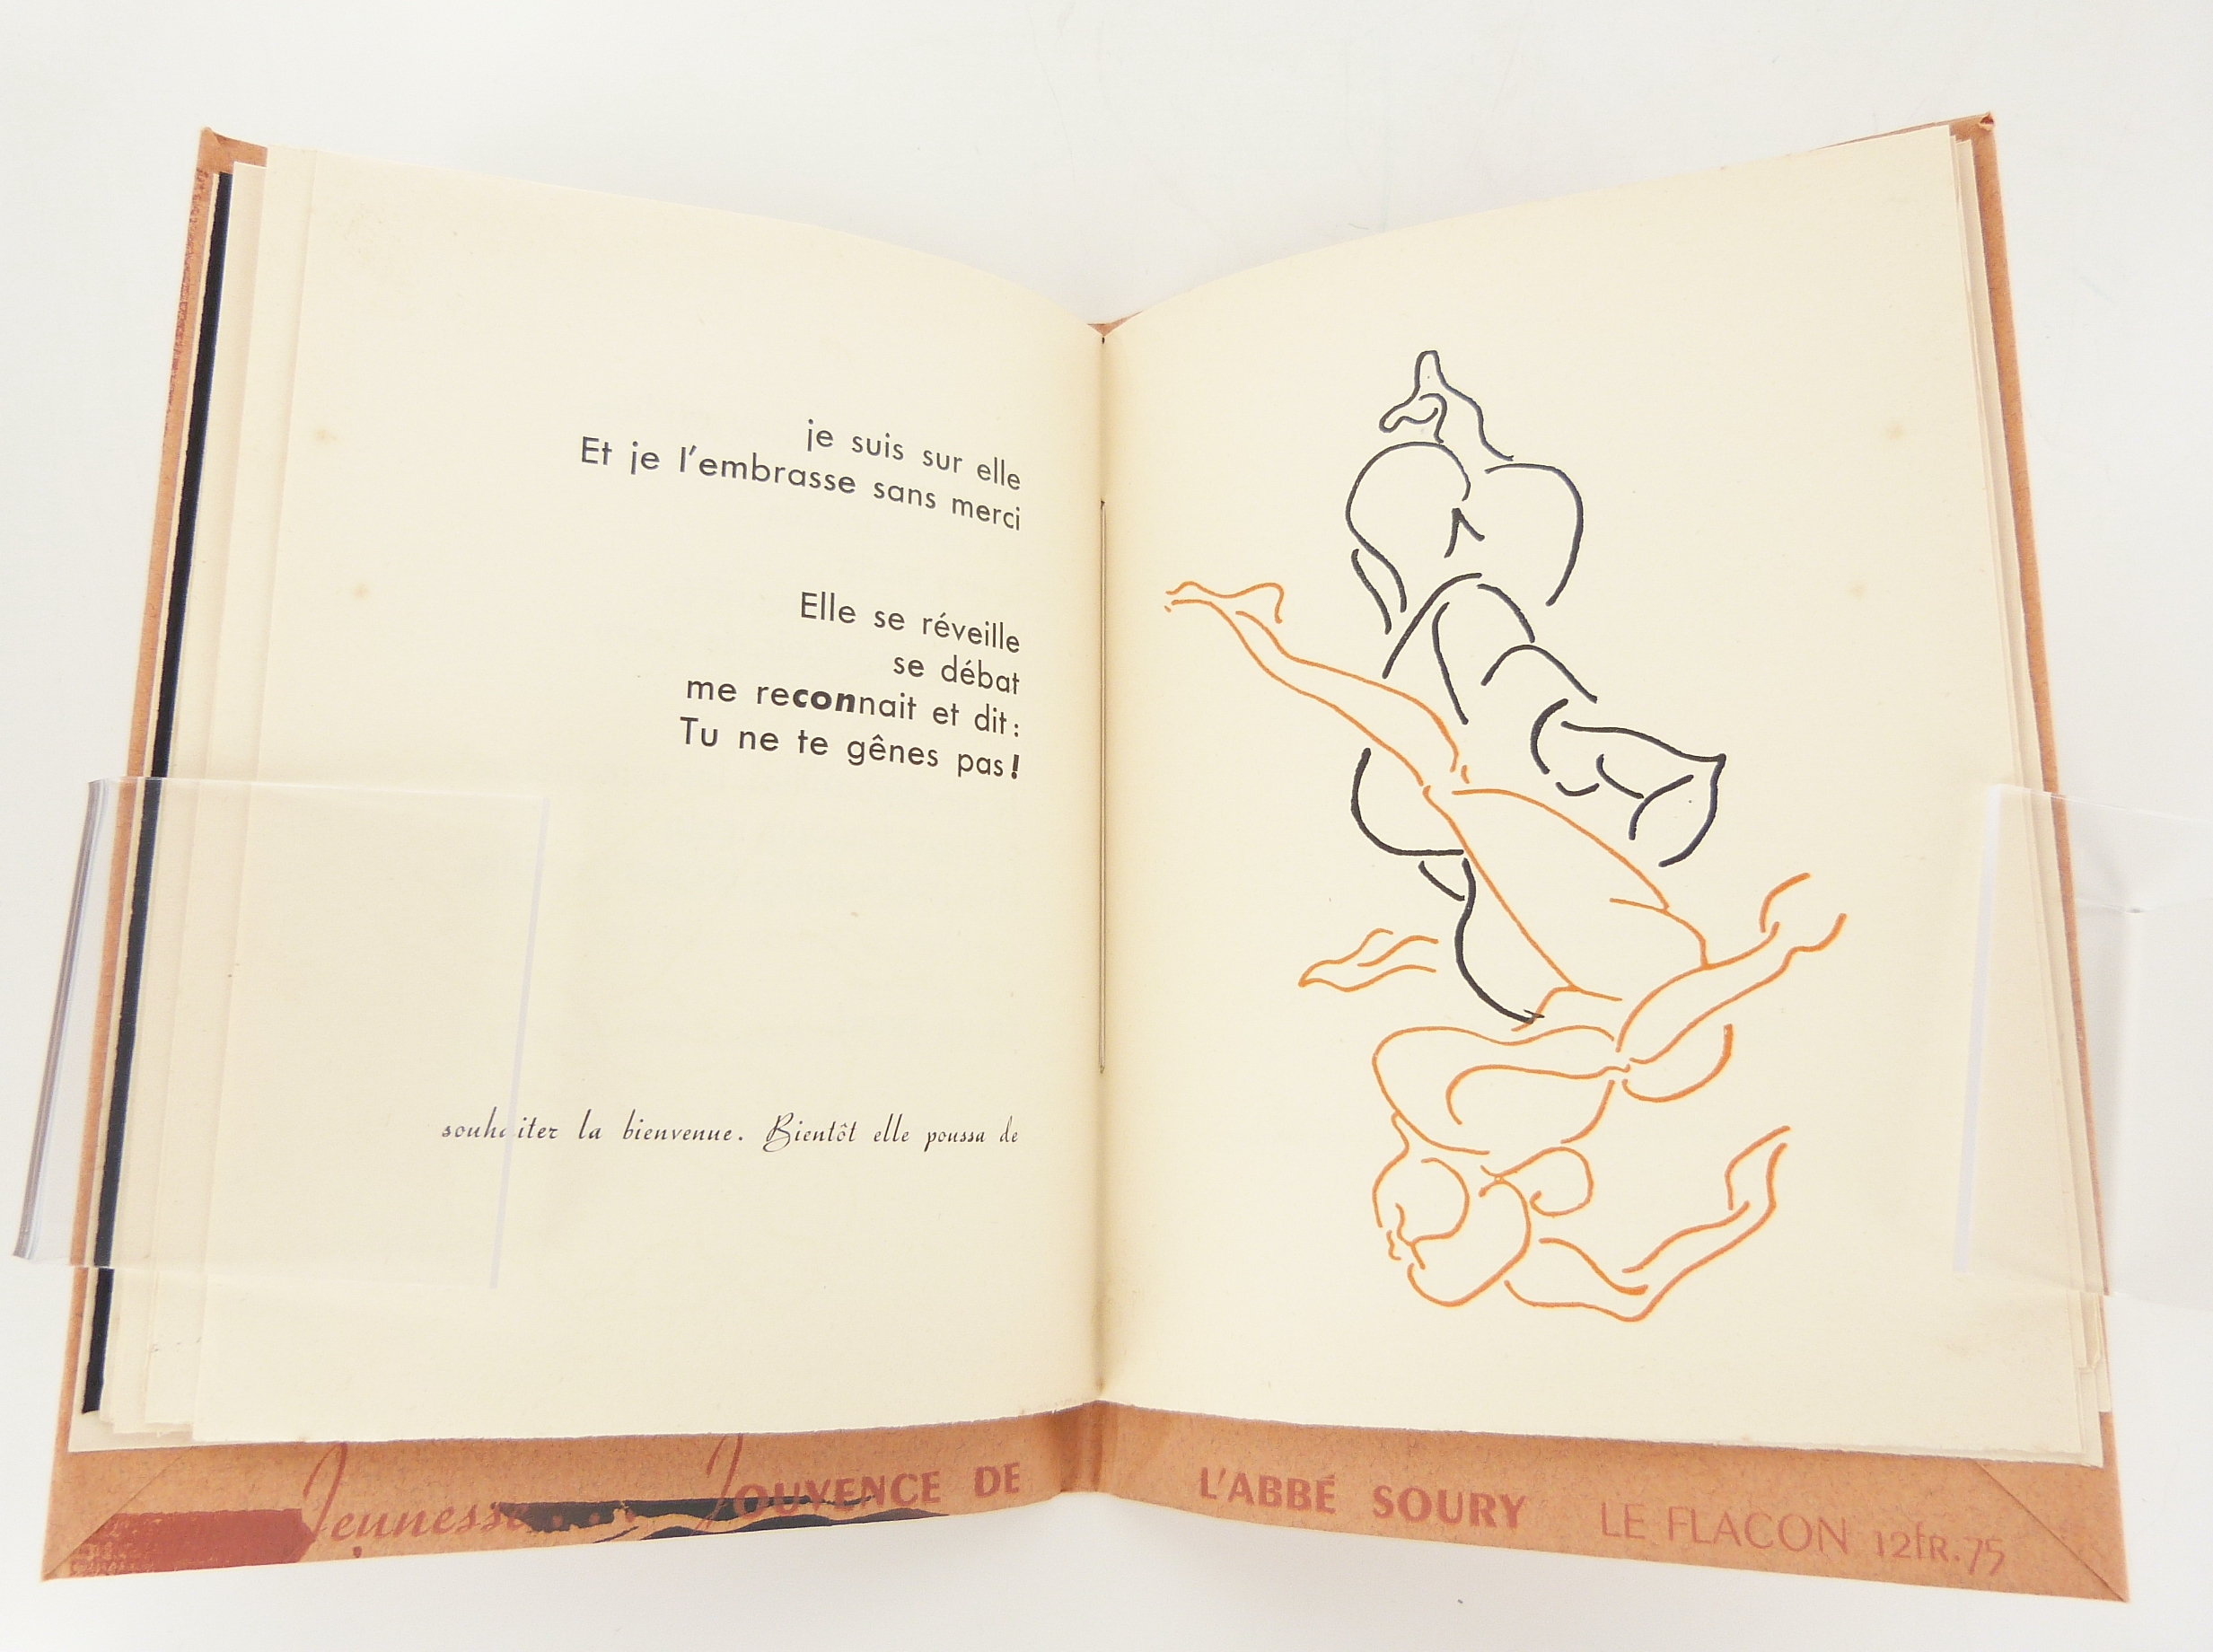 je suis sur elle
Et je l'embrasse sans merci
Elle se réveille
se débat
me reconnait et dit :
Tu ne te gênes pas !
souhaiter la bienvenue. Bientôt elle poussa de
Jeunesse... JOUVENCE DE L'ABBÉ SOURY LE FLACON 12fR.75